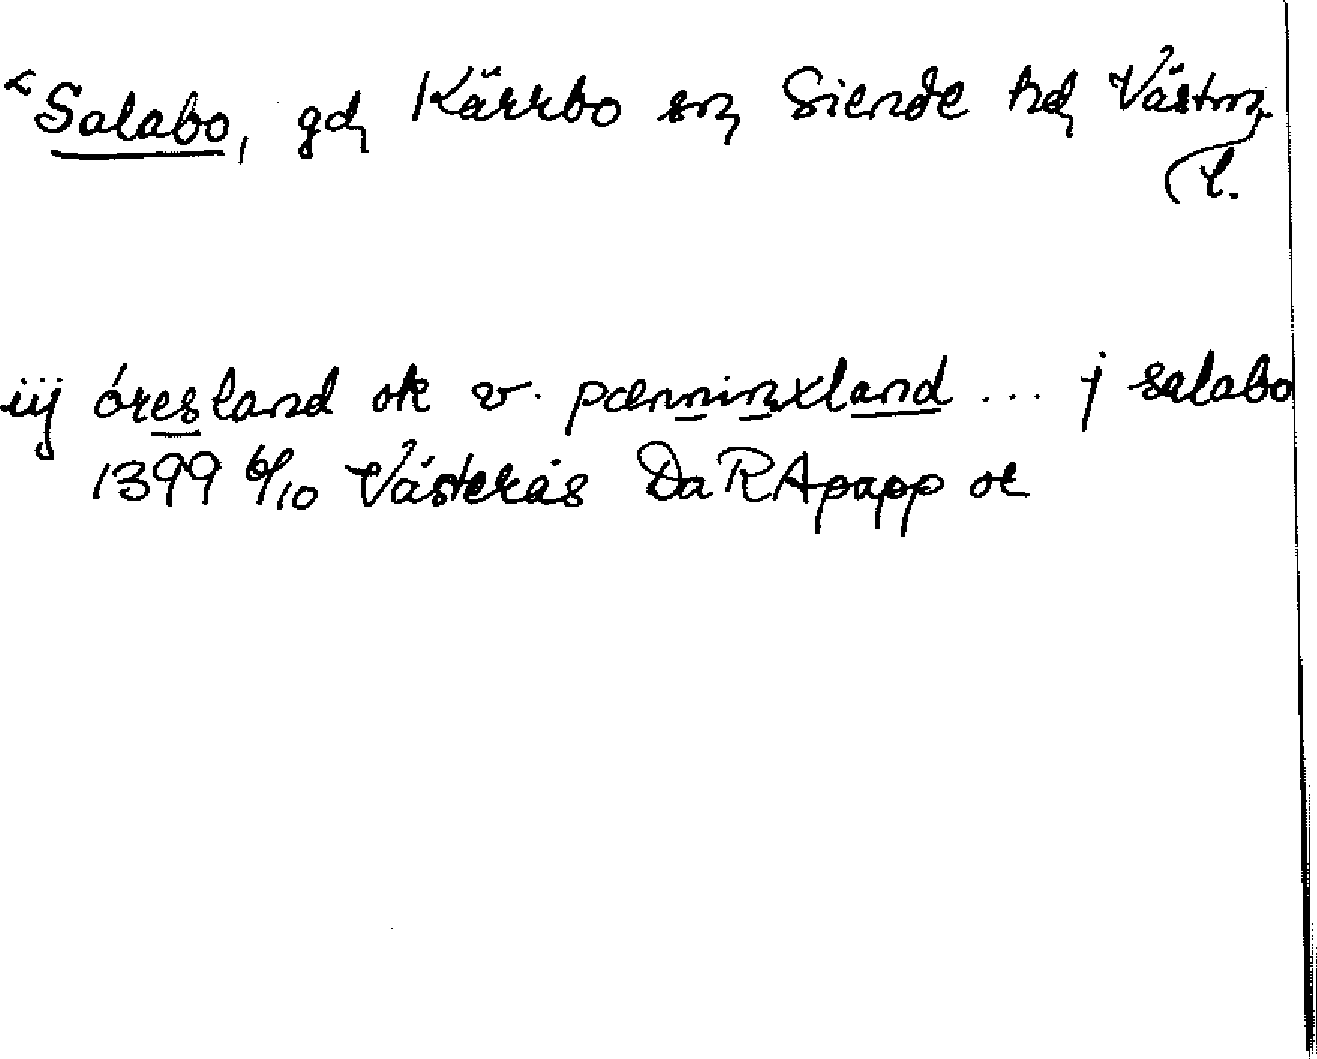 Salabo, gd, Kärrbo sn, Siende hd, Västm.
l.
iij öresland ok v. pænninxland ... j salabo
1399 6/10 Västerås Da RApapp or